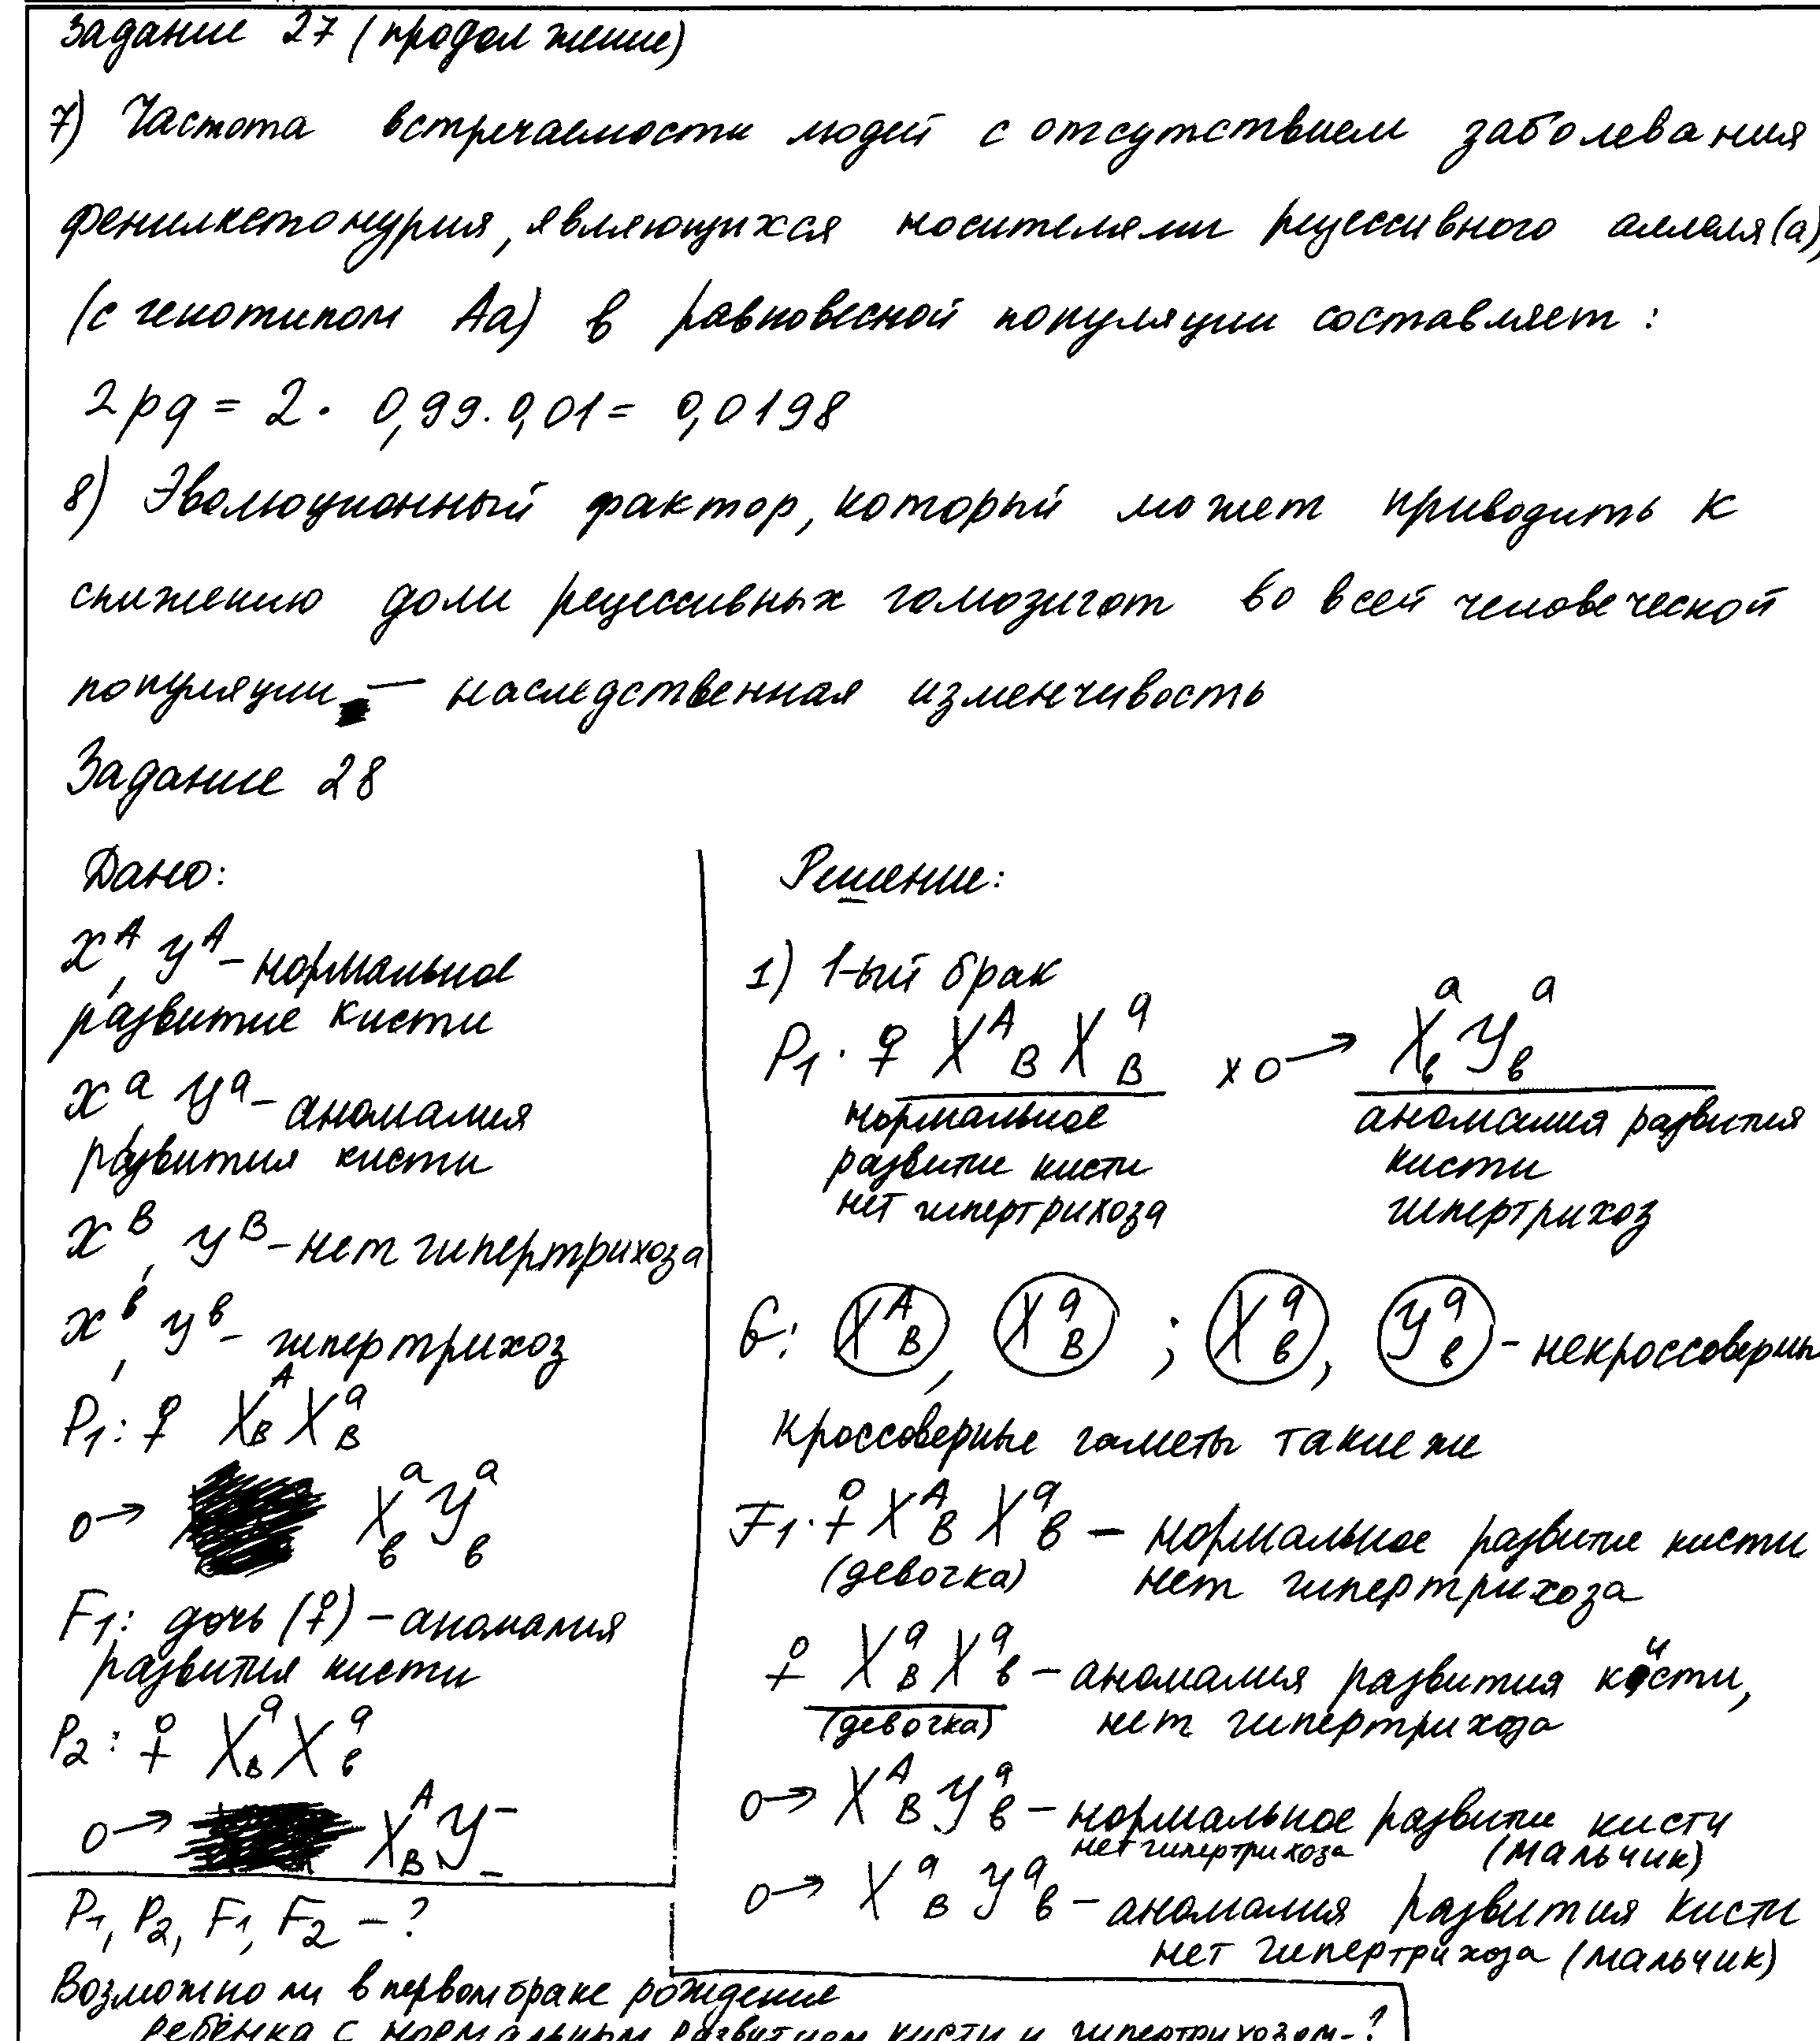 Задание 27 (продолжение)
7) Частота встречаемости людей с отсутствием заболевания
фенилкетонурия, являющихся носителями рецессивного аллеля (а)
(с генотипом Аа) в равновесной популяции составляет:
2pq = 2 · 0,99 · 0,01 = 0,0198
8) Эволюционный фактор, который может приводить к
снижению доли рецессивных гомозигот во всей человеческой
популяции — наследственная изменчивость
Задание 28
Дано:
X^A, Y^A – нормальное
развитие кисти
X^a, Y^a – аномалия
развития кисти
X^B, Y^B – нет гипертрихоза
X^в, Y^в – гипертрихоз
P1: ♀ X^A_B X^a_B
♂ X^a_в Y^a_в
F1: дочь (♀) – аномалия
развития кисти
P2: ♀ X^a_B X^a_в
♂ X^A_B Y^-_-
P1, P2, F1, F2 – ?
Возможно ли в первом браке рождение
ребёнка с нормальным развитием кисти и гипертрихозом – ?
Решение:
1) 1-ый брак
P1: ♀ X^A_B X^a_B × ♂ X^a_в Y^a_в
нормальное аномалия развития
развитие кисти кисти
нет гипертрихоза гипертрихоз
G: X^A_B, X^a_B ; X^a_в, Y^a_в – некроссоверн
Кроссоверные гаметы такие же
F1: ♀ X^A_B X^a_в – нормальное развитие кисти
(девочка) нет гипертрихоза
♀ X^a_B X^a_в – аномалия развития кисти,
(девочка) нет гипертрихоза
♂ X^A_B Y^a_в – нормальное развити кисти
нет гипертрихоза (мальчик)
♂ X^a_B Y^a_в – аномалия развития кисти
нет гипертрихоза (мальчик)